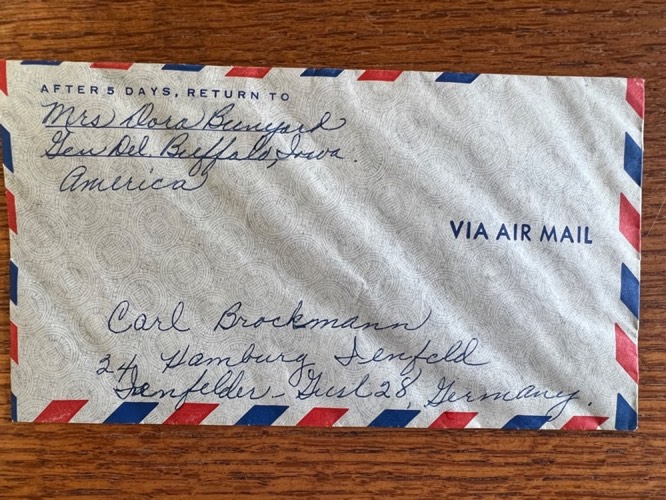 AFTER 5 DAYS, RETURN TO
Mrs Dora Bunyard
Gen Del. Buffalo, Iowa.
America
VIA AIR MAIL
Carl Brockmann
24 Hamburg Jenfeld
28, Germany.